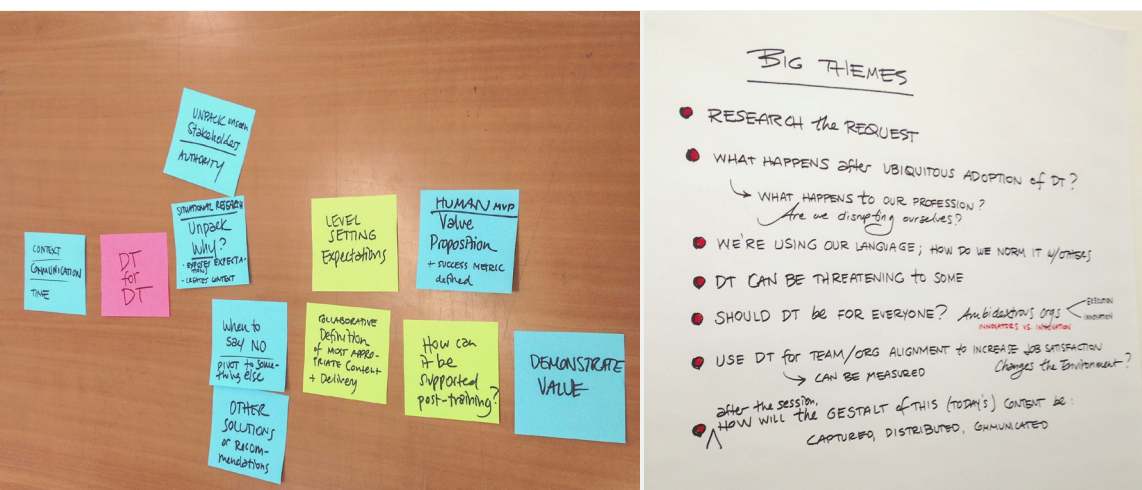 UNPACK unseen
Stakeholders
AUTHORITY
CONTEXT
COMMUNICATION
TIME
DT
for
DT
SITUATIONAL RESEARCH
Unpack
Why?
• EXPOSES EXPECTA-
TIONS
• CREATES CONTENT
When to
say NO
PIVOT to some-
thing else
OTHER
SOLUTIONS
or RECOM-
mendations
LEVEL
SETTING
Expectations
COLLABORATIVE
Definition
of MOST APPRO-
PRIATE Content
+ Delivery
HUMAN MVP
Value
Proposition
+ SUCCESS METRIC
defined
How can
it be
supported
post-training?
DEMONSTRATE
VALUE
BIG THEMES
RESEARCH the REQUEST
WHAT HAPPENS after UBIQUITOUS ADOPTION of DT?
WHAT HAPPENS to OUR PROFESSION?
Are we disrupting ourselves?
WE'RE USING OUR LANGUAGE; HOW DO WE NORM IT W/OTHERS
DT CAN BE THREATENING to SOME
SHOULD DT be FOR EVERYONE? Ambidextrous orgs
EXECUTION
INNOVATION
INNOVATORS VS. INNOVATION
USE DT for TEAM/ORG ALIGNMENT to INCREASE JOB SATISFACTION
CAN BE MEASURED
Changes the Environment?
after the session,
HOW WILL the GESTALT of THIS (TODAY'S) CONTENT be:
CAPTURED, DISTRIBUTED, COMMUNICATED